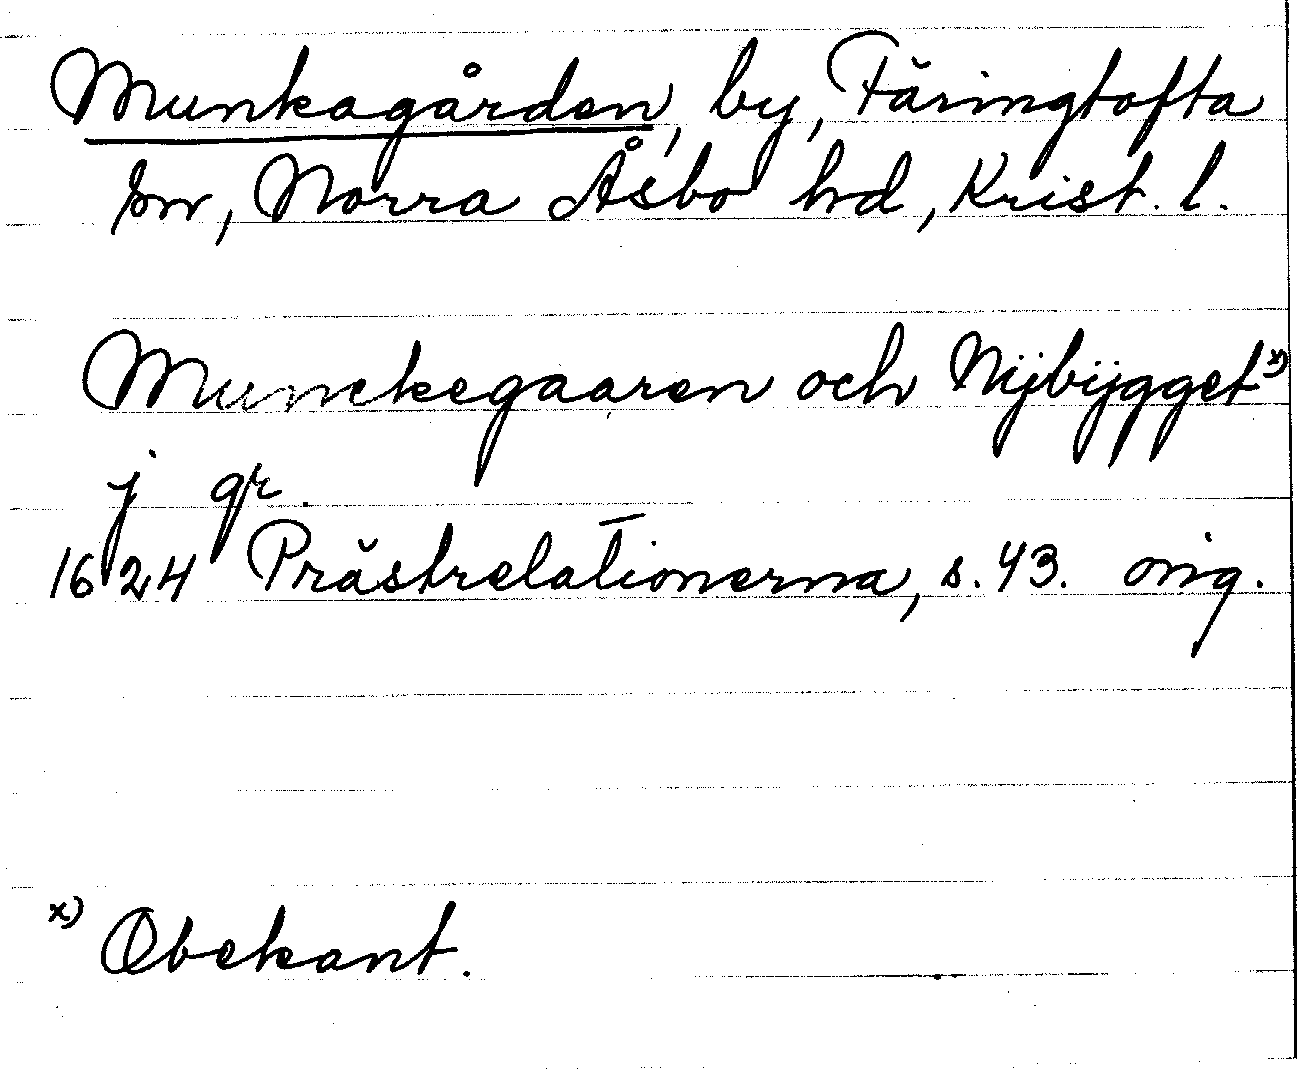 Munkagården, by, Färingtofta
sn, Norra Åsbo hd, Krist. l.
Munckegaaren och Nÿbÿgget x)
j gr.
1624 Prästrelationerna, s. 43. orig.
x) Obekant.